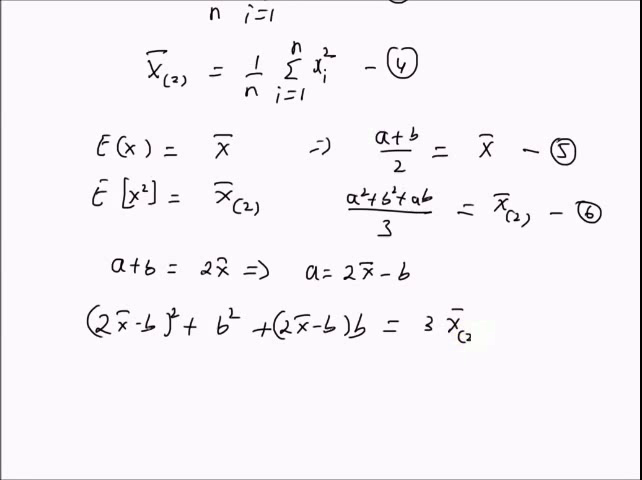 n i=1
x̄₍₂₎ = 1/n Σⁿᵢ₌₁ xᵢ² - ④
E(x) = x̄ => a+b/2 = x̄ - ⑤
E[x²] = x̄₍₂₎ a²+b²+ab/3 = x̄₍₂₎ - ⑥
a+b = 2x̄ => a = 2x̄-b
(2x̄-b)² + b² + (2x̄-b)b = 3 x̄₍₂